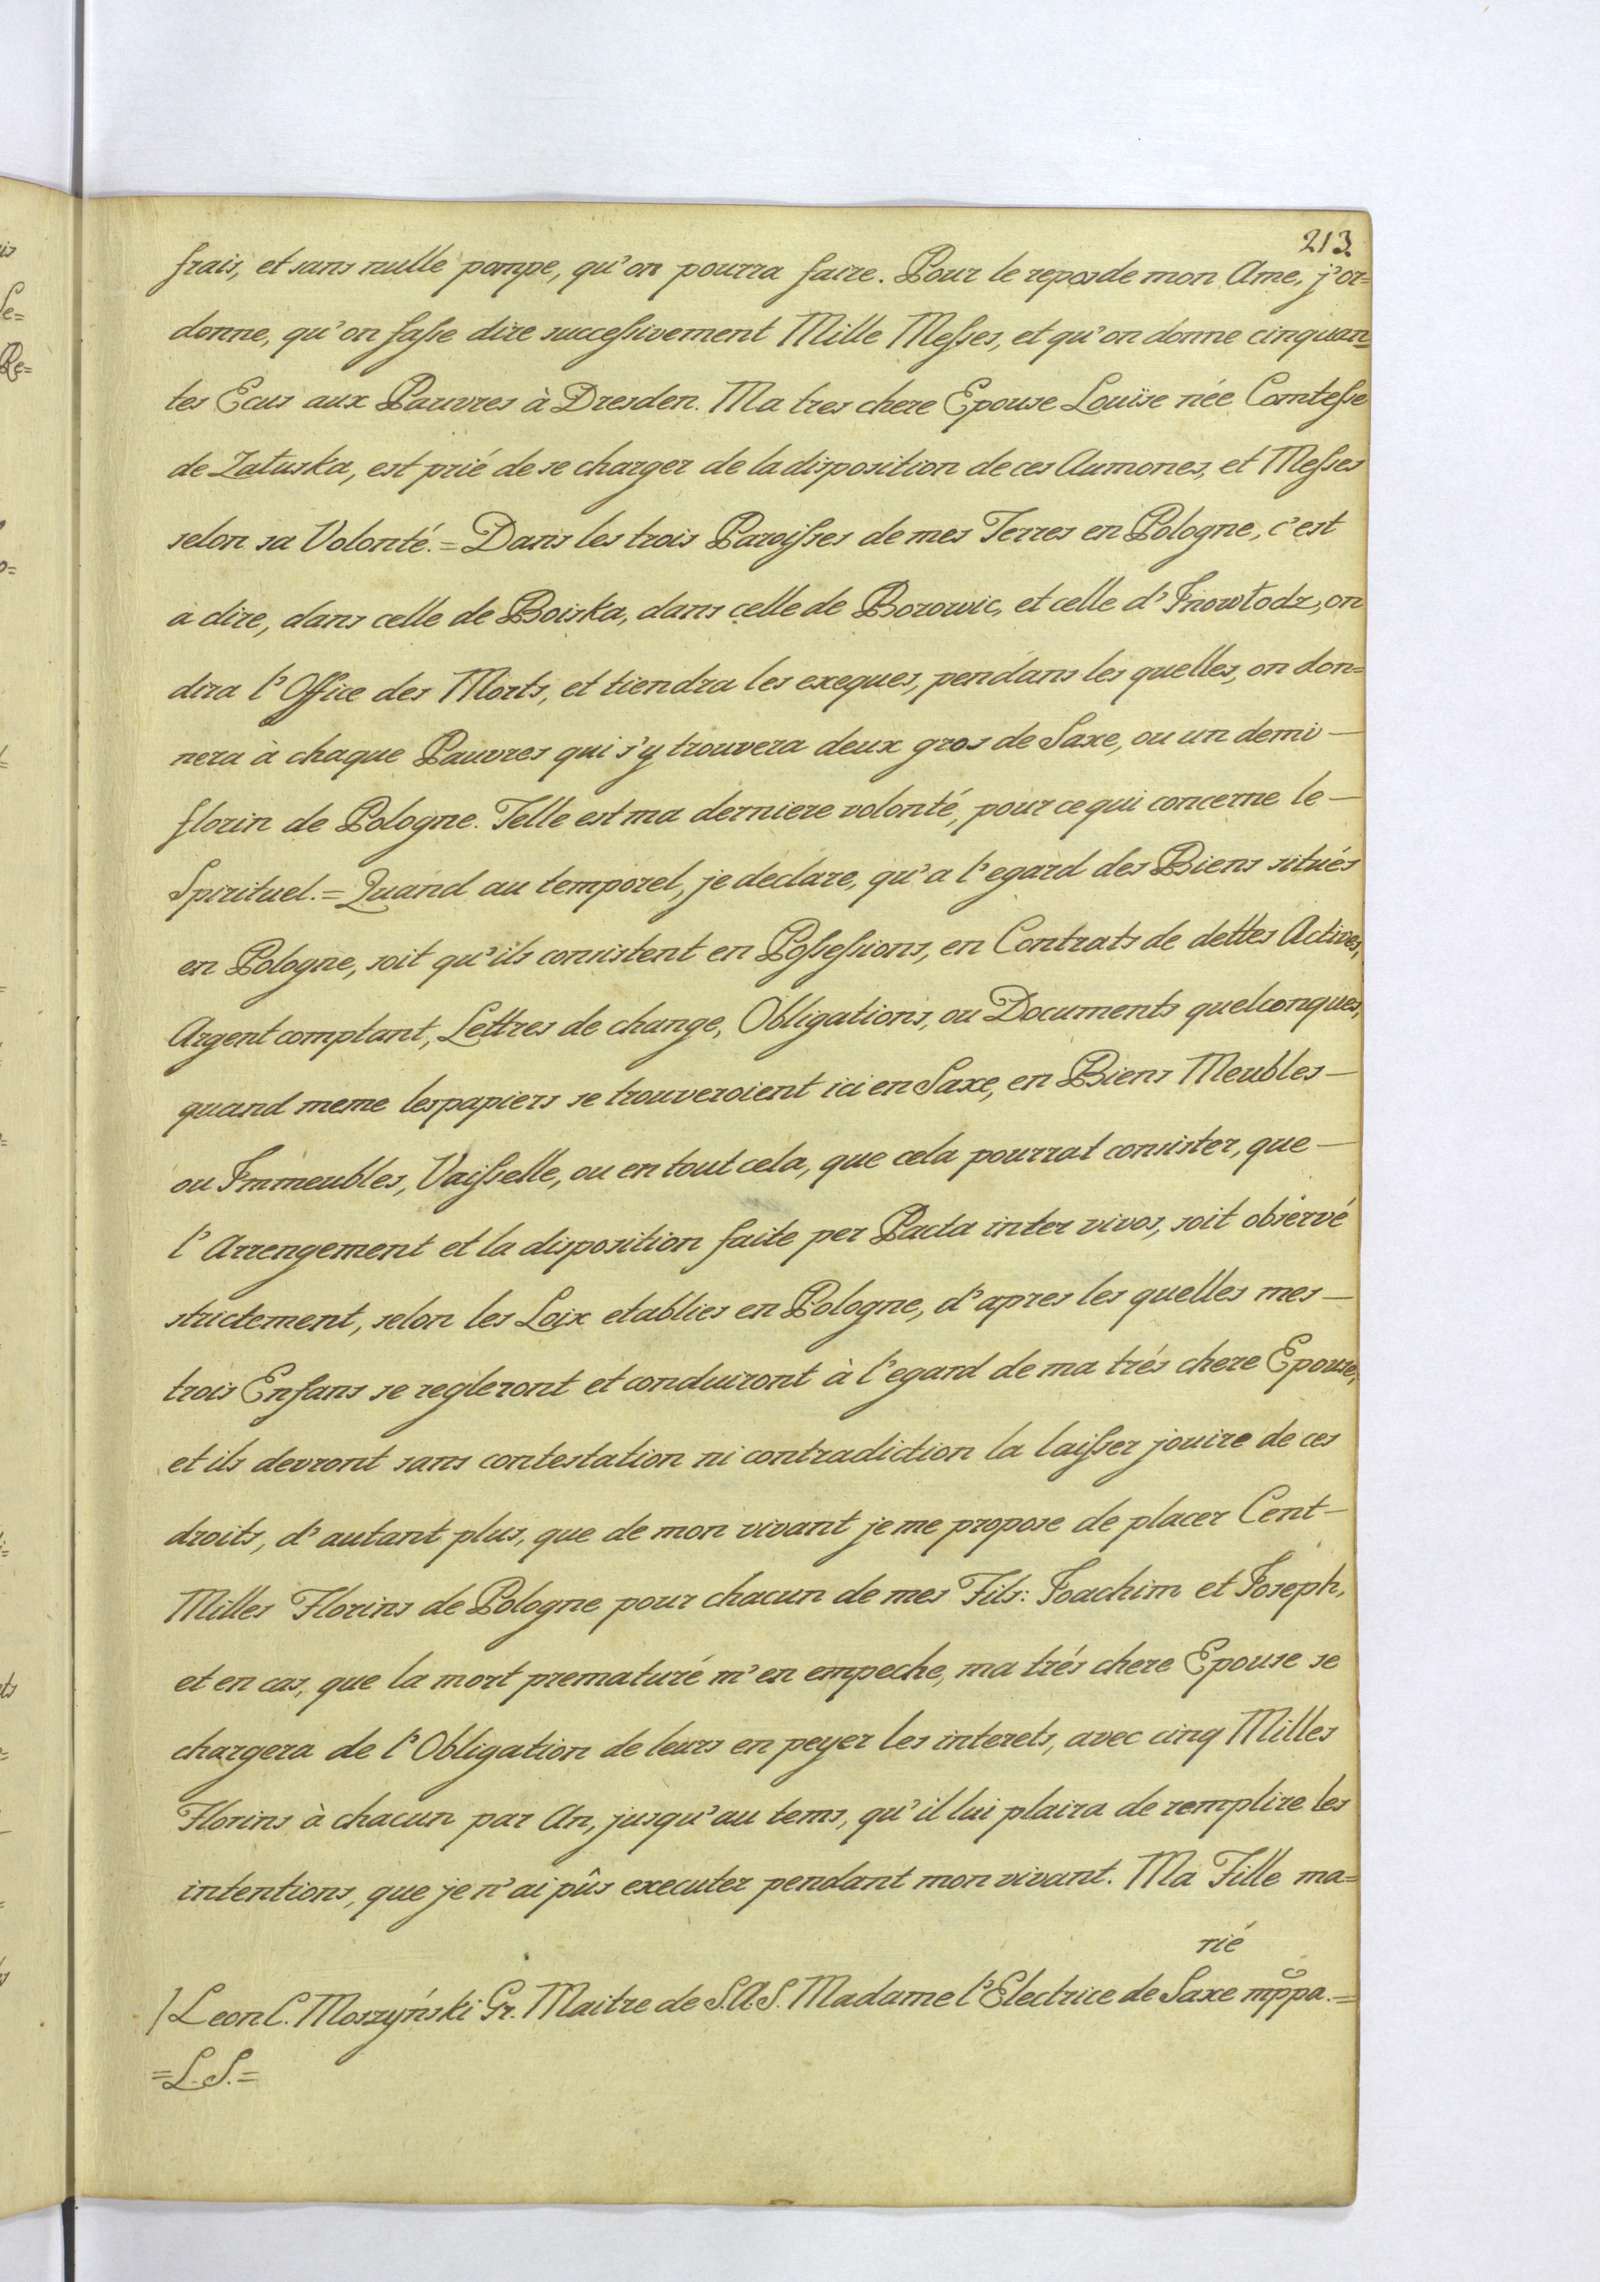 213.
frais, et sans nulle pompe, qu'on pourra faire. Pour le repos de mon Ame, j'or=
donne, qu'on fasse dire successivement Mille Messes, et qu'on donne cinquan=
tes Ecus aux Pauvres à Dresden. Ma tres chere Epouse Louïse née Comtesse
de Załuska, est prié de se charger de la disposition de ces Aumones, et Messes
selon sa Volonté.= Dans les trois Paroisses de mes Terres en Pologne, c'est
a dire, dans celle de Boiska, dans celle de Borowic, et celle d'Inowłodz, on
dira l'Office des Morts, et tiendra les exeques, pendans les quelles, on don=
nera à chaque Pauvres qui s'y trouvera deux gros de Saxe, ou un demi —
florin de Pologne. Telle est ma derniere volonté, pour ce qui concerne le —
Spirituel.= Quand au temporel, je declare, qu'a l'egard des Biens situés
en Pologne, soit qu'ils consistent en Possessions, en Contrats de dettes Actives,
Argent comptant, Lettres de change, Obligations, ou Documents quelconques,
quand meme les papiers se trouveroient ici en Saxe, en Biens Meubles —
ou Immeubles, Vaisselle, ou en tout cela, que cela pourrat consister, que —
l'Arrengement et la disposition faite per Pacta inter vivos, soit observé
strictement, selon les Loix etablies en Pologne, d'apres les quelles mes —
trois Enfans se regleront et conduiront à l'egard de ma trés chere Epouse,
et ils devront sans contestation ni contradiction la laisser jouire de ces
droits, d'autant plus, que de mon vivant je me propose de placer Cent —
Milles Florins de Pologne pour chacun de mes Fils: Joachim et Joseph,
et en cas, que la mort prematuré m'en empeche, ma trés chere Epouse se
chargera de l'Obligation de leurs en peyer les interets, avec cinq Milles
Florins à chacun par An, jusqu'au tems, qu'il lui plaira de remplire les
intentions, que je n'ai pûs executer pendant mon vivant. Ma Fille ma=
rié
/ Leon C. Moszyński Gr. Maitre de S.A.S. Madame l'Electrice de Saxe mppa.=
=L.S.=